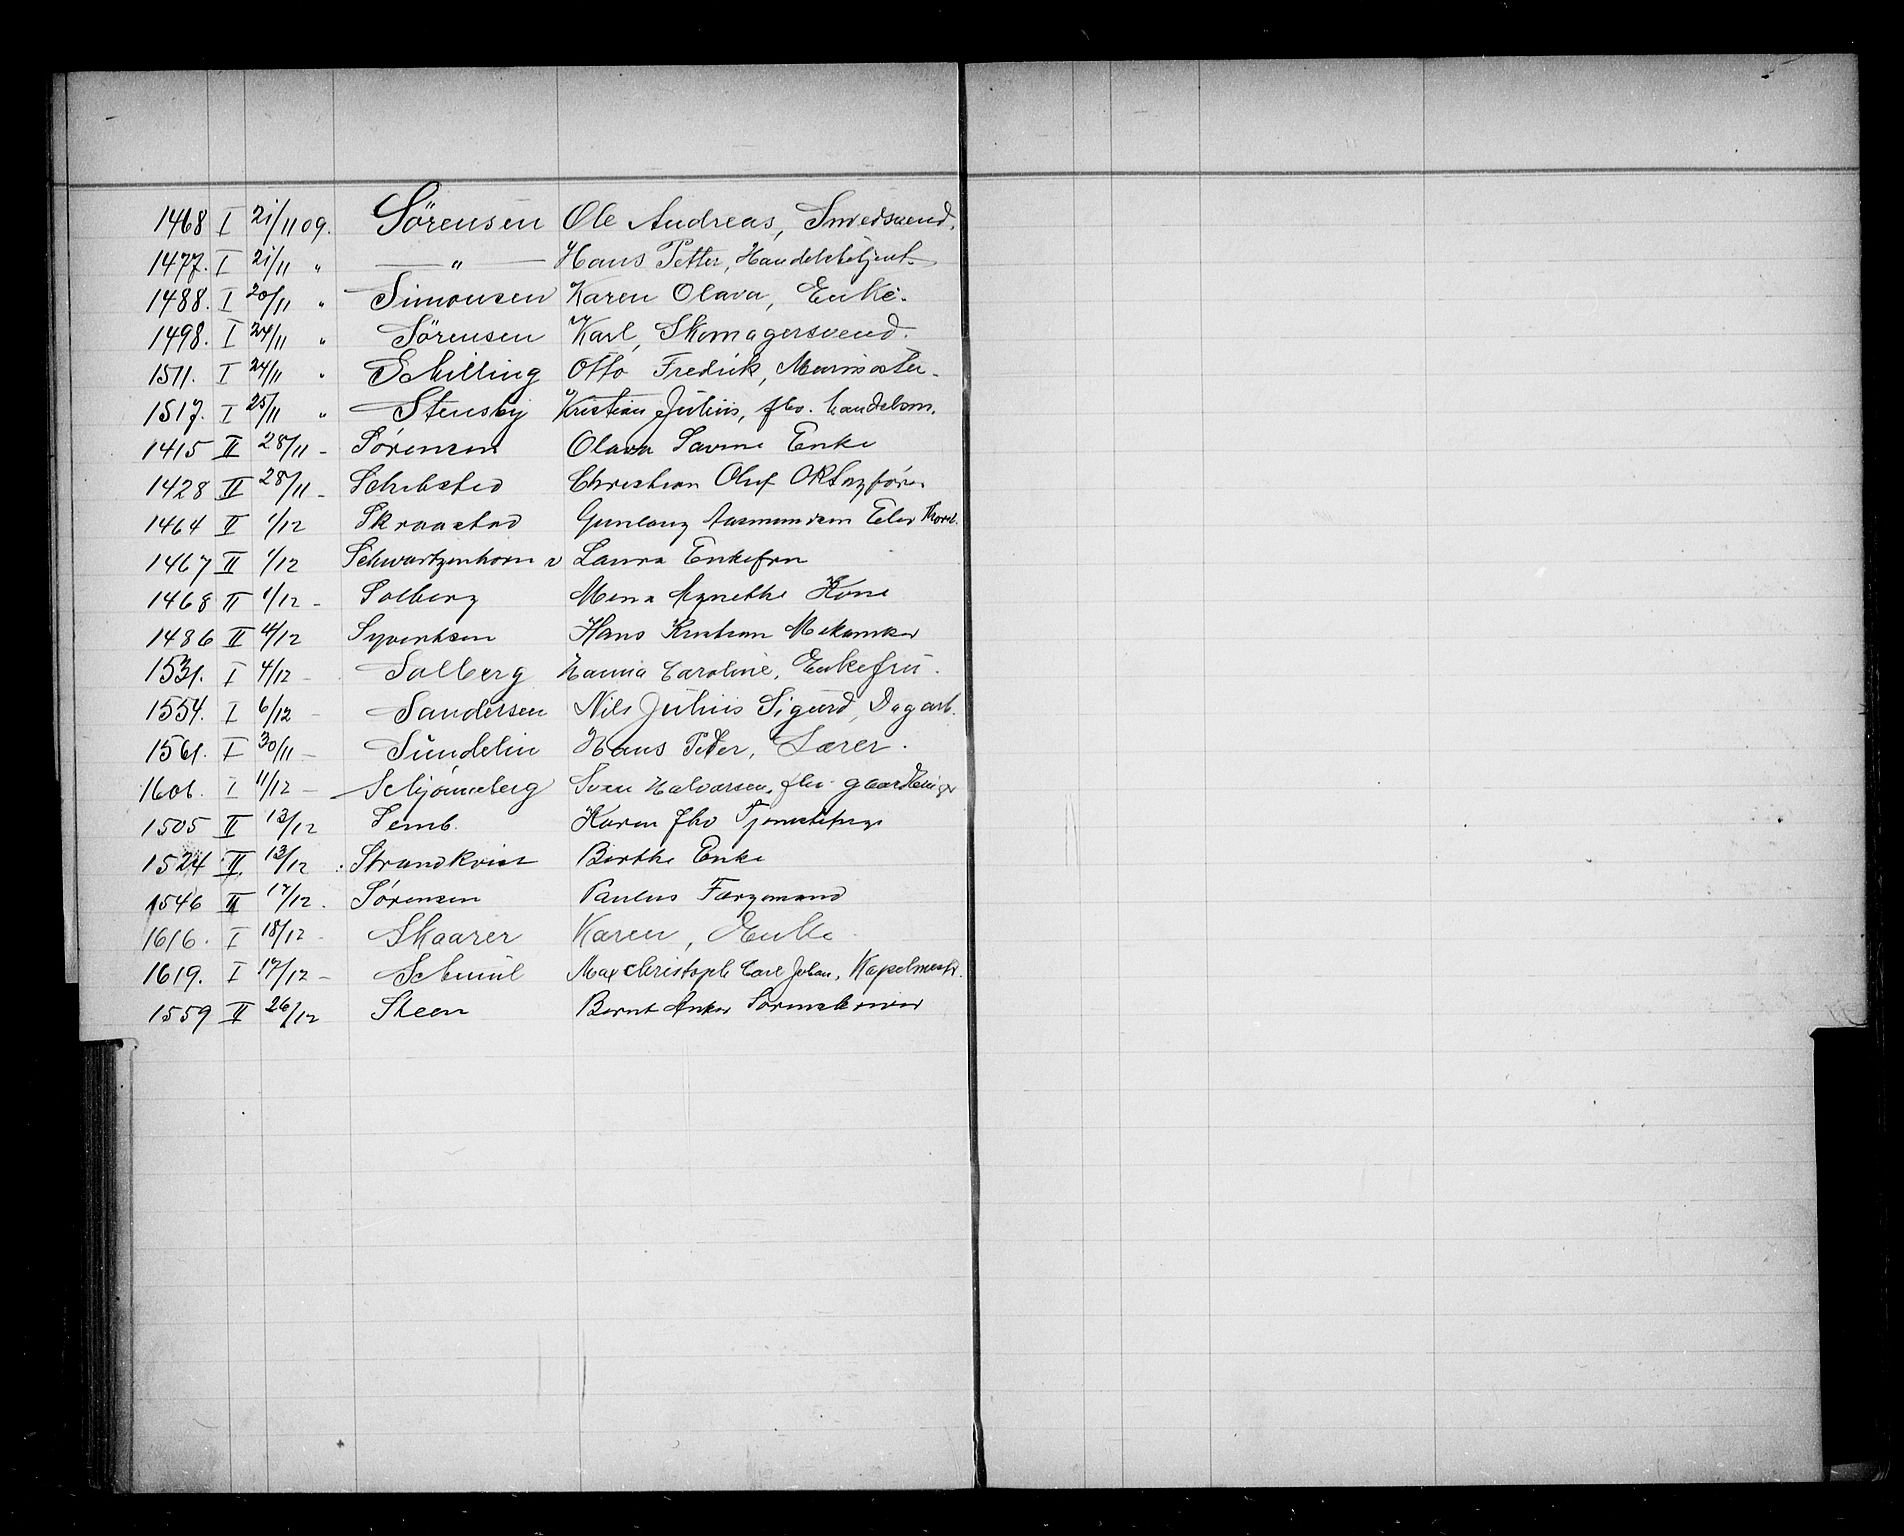 1468 I 21/11 09. Sörensen Ole Andreas, Smedsvend.
1477. I 21/11 " — " — Hans Petter, Handelsbetjent
1488. I 20/11 " Simonsen Karen Olava, Enke.
1498. I 24/11 " Sörensen Karl, Skomagersvend.
1511. I 24/11 " Schilling Otto Fredrik, Murmester
1517. I 25/11 " Stensby Kristian Julius, fhv. handelsm.
1415 II 28/11 - Sørensen Olava Enke
1428 II 28/11 - Schibsted Christian Oluf
1464 II 1/12 Skraastad Gunlaug Aasmundsen
1467 II 1/12 Schwartzenhorn v Laura Enkefru
1468 II 1/12 - Solberg Agnethe Kone
1486 II 4/12 Syvertsen Hans Kristian Mekaniker
1531. I 4/12 - Solberg Hanna Caroline, Enkefru.
1554. I 6/12 - Sandersen Nils Julius Sigurd, Dagarb.
1561. I 30/11 - Sundelin Hans Peter, Lærer.
1601. I 11/12 - Schjønneberg Sven Halvorsen, fhv.
1505 II 13/12 Semb. Karen fhv Tjenestepige
1524 II 13/12 Strandkvist Berthe Enke
1546 II 17/12. Sørensen Paulus Færgemand
1616. I 18/12 - Skaarer Karen, Enke.
1619. I 17/12 - Max Christoph Carl Johan, Kapelmestr.
1559 II 26/12 Steen Bernt Anker Sorenskriver